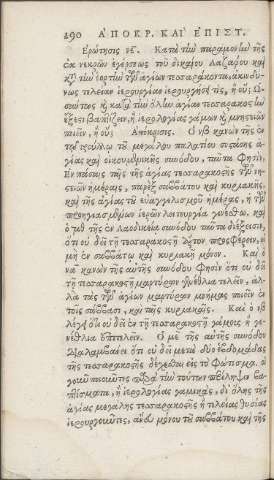 290 ἈΠΟΚΡ. ΚΑΙ ἘΠΙΣΤ.
Ἐρώτησις νʹ. Κατὰ τὴν παραμονὴν τῆς
ἐκ νεκρῶν ἐγέρσεως τοῦ δικαίου Λαζάρου καὶ
κατὰ τὴν ἑορτὴν τῶν ἁγίων τεσσαράκοντα, ἀκινδύ-
νως τελείαν ἱερουργίαν ἱερουργήσει τὶς, ἢ οὔ; Ὡ-
σαύτως καὶ καθ' τὴν ὅλην ἁγίαν τεσσαρακοστὴν
ἔξεστι βαπτίζειν, ἢ ἱερολογίας γάμων καὶ μνηστειῶν
ποιεῖν, ἢ οὔ; Ἀπόκρισις. Ὁ νβ κανὼν τῆς ἐν
τῷ τρούλλῳ τοῦ μεγάλου παλατίου συστάσης ἁ-
γίας καὶ οἰκουμενικῆς συνόδου, ταῦτα φησίν.
Ἐν πάσαις ταῖς τῆς ἁγίας τεσσαρακοστῆς τῶν νη-
στειῶν ἡμέραις, παρεξ σαββάτου καὶ κυριακῆς,
καὶ τῆς ἁγίας τοῦ εὐαγγελισμοῦ ἡμέρας, ἡ τῶν
προηγιασμένων ἱερῶν λειτουργία γενέσθω. καὶ
ὁ μθ τῆς ἐν Λαοδικείᾳ συνόδου ταῦτα διέξεισιν,
ὅτι οὐ δεῖ τῇ τεσσαρακοστῇ ἄρτον προσφέρειν, εἰ
μὴ ἐν σαββάτῳ καὶ κυριακῇ μόνον. Καὶ ὁ
να κανὼν τῆς αὐτῆς συνόδου φησὶν ὅτι οὐ δεῖ
τῇ τεσσαρακοστῇ μαρτύρων γενέθλια τελεῖν, ἀλ-
λὰ τὰς τῶν ἁγίων μαρτύρων μνήμας ποιεῖν ἐν
τοῖς σάββασι, καὶ ταῖς κυριακαῖς. Καὶ ὁ νβ
λέγει ὅτι οὐ δεῖ ἐν τῇ τεσσαρακοστῇ γάμους ἢ γε-
νέθλια ἐπιτελεῖν. Ὁ με τῆς αὐτῆς συνόδου
διαλαμβάνει ὅτι οὐ δεῖ μετὰ δύο ἑβδομάδας
τῆς τεσσαρακοστῆς δέχεσθαι εἰς τὸ φώτισμα. οἱ
γοῦν ποιοῦντες παρὰ τὴν τούτων περίληψιν βα-
πτίσματα, ἢ ἱερολογίας γαμικὰς, δι' ὅλης τῆς
ἁγίας μεγάλης τεσσαρακοστῆς ἢ τελείας θυσίας
ἱερουργοῦντες, ἄνευ μόνου τοῦ σαββάτου καὶ τῆς